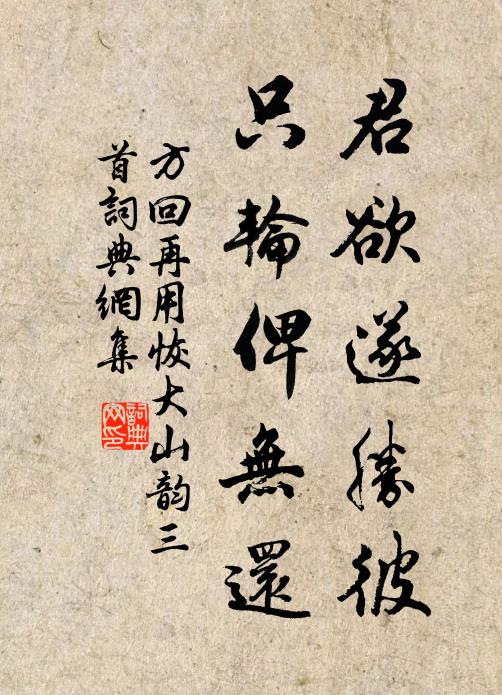 君欲遂勝彼
只輪俾無還
方回再用恢大山韵三
首詞典網集
詞典
网印